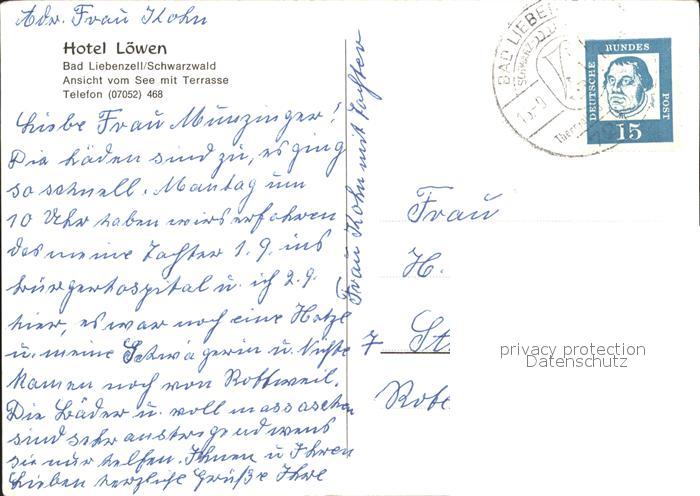 Adr. Frau Kohn
Hotel Löwen
Bad Liebenzell/Schwarzwald
Ansicht vom See mit Terrasse
Telefon (07052) 468
Liebe Frau Munzinger!
Die Läden sind zu, es ging
so schnell. Mantag um
10 Uhr haben wirs erfahren
das meine Tochter 1.9. ins
Bürgerhospital u. ich 2.9.
hier, es war noch eine Hetze
u. meine Schwägerin u. Nichte
kamen noch von Rottweil.
Die Bäder u. voll massaschen
sind sehr anstregend wens
sie nur helfen. Ihnen u Ihren
Lieben herzliche Grüße Ihre
Frau Kohn mit Tochter
BAD LIEBEN
DEUTSCHE
BUNDES
POST
15
Frau
H.
7 St
Robe
privacy protection
Datenschutz